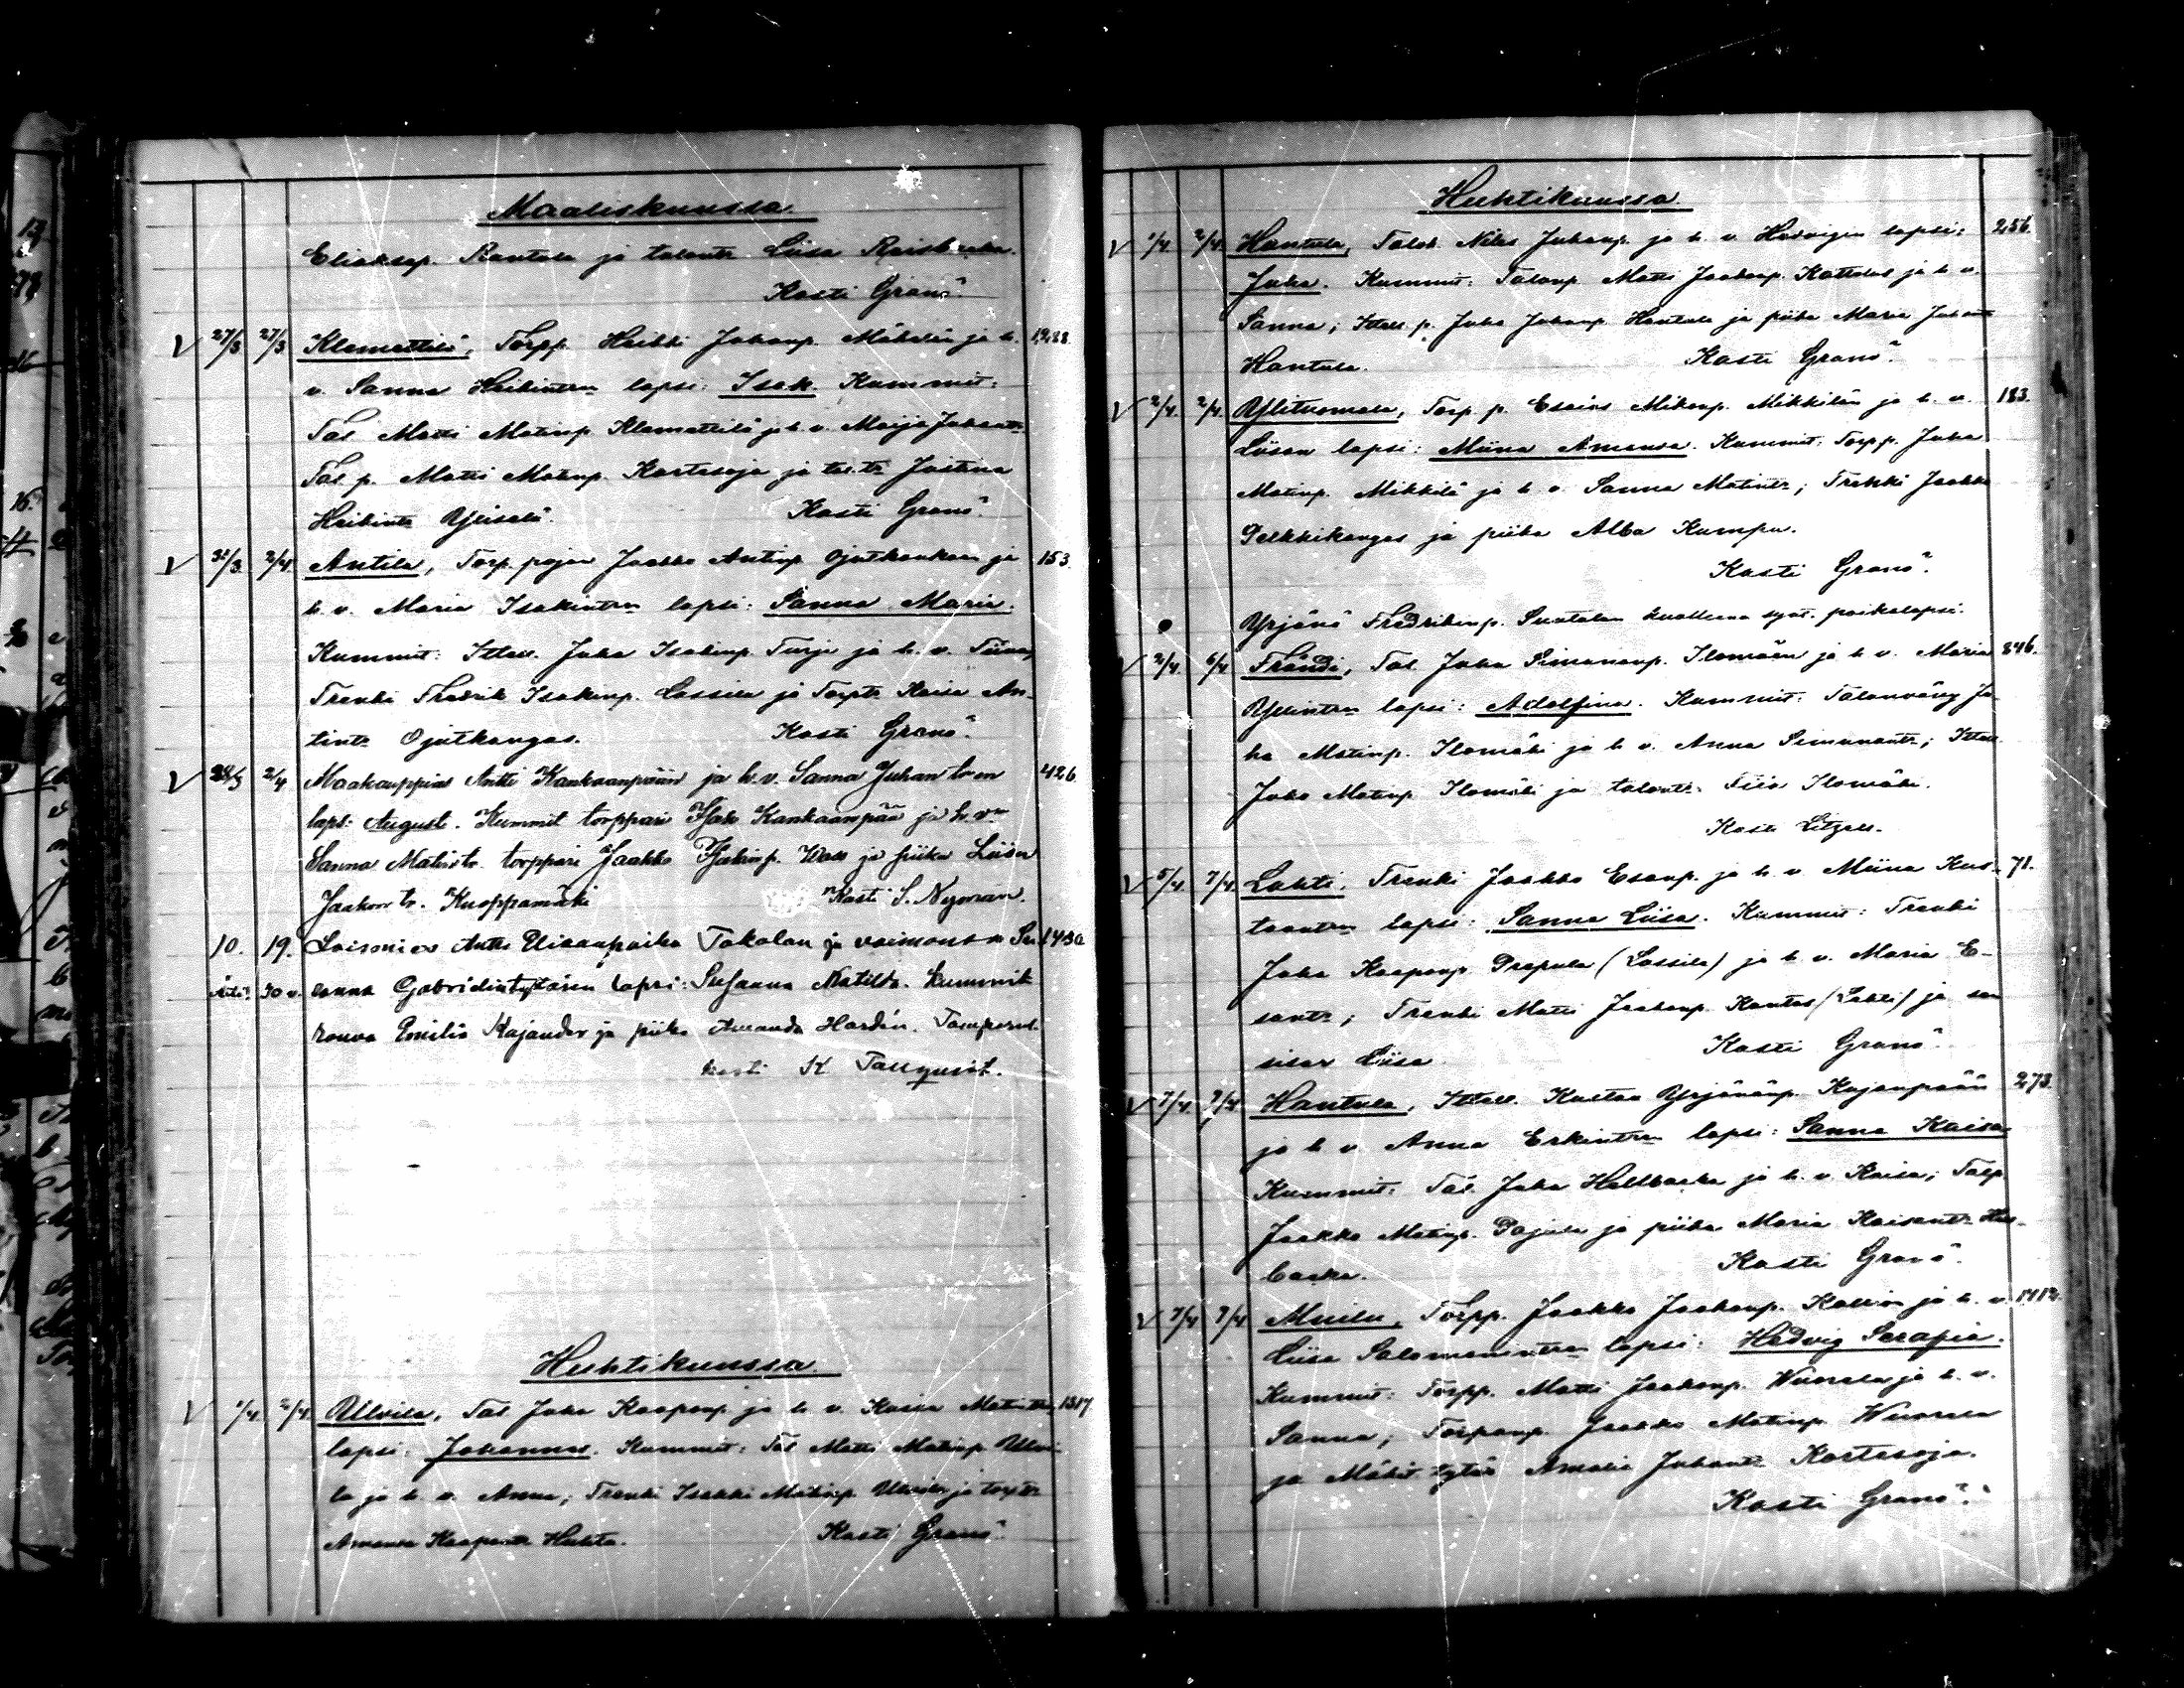 Maaliskuussa.
Eliaksep. Rantala ja talontr Liisa
Kasti Granö.
V 27/3 27/3 Klemettilä, Torpp. Heikki Juhanp. Mäkelän ja h. 1288
v. Sanna Heikintrn lapsi: Isak. Kummit:
Tal. Matti Matinp. Klemettilä ja h. v. Maija Juhantr
Tal. p. Matti Matinp. Kortesoja ja tal.tr Justina
Heikintr Ylisalo. Kasti Granö.
V 31/3 2/4 Antila, Torp. pojan Jaakko Antinp. Ojutkankaan ja 153.
h. v. Maria Isakintrn lapsi: Sanna Maria.
Kummit: Itsell. Juha Isakinp. Turja ja h. v. Tiina,
Trenki Fredrik Isakinp. Lassila ja Torptr Kaisa An-
tintr Ojutkangas. Kasti Granö.
V 28/3 2/4 Maakauppias Antti Kankaanpään ja h. v. Sanna Juhan tr en 426
laps: August. Kummit torppari Isak Kankaanpää ja h. vn
Sanna Matintr. torppari Jaakko Isakinp. ja piika Liisa
Jaakon tr. Knoppamäki Kasti S. Nyman.
10. 19. Loisonies Antti Uicanpoika Takalan ja vaimonsa Su 1430
30 v. sanna Gabrielintyttären lapsi: Susanna Matilda. Kummit
rouva Emilia Kajander ja piika Amanda Hordén. Tamperel.
kasti K Tallqvist.
Huhtikuussa.
V 1/4. 2/4. Ullvila, Tal. Juha Kaaponp. ja h. v. Kaisa Matintr 1317
lapsi: Johannes. Kummit: Tal. Matti Matinp. Ulvi-
la ja h. v. Anna; Trenki Isakki Matinp. Ulvila ja torptr
Amanda Kaapontr Huhta. Kasti Granö.
Huhtikuussa.
V 1/4. 2/4. Hantula, Talol. Niles Juhanp. ja h. v. Hedvigin lapsi: 256.
Juha. Kummit: Talonp. Matti Jaakonp. Kattelus ja h. v.
Sanna; Itsell. p. Juha Juhanp. Hantula ja piika Maria Juhantr
Hantula. Kasti Granö.
V 2/4. 2/4. Ylituomala, Torp. p. Esaias Mikonp. Mikkilän ja h. v. 183.
Liisan lapsi: Miina Amanda. Kummit: Torpp. Juha
Matinp. Mikkilä ja h. v. Sanna Matintr; Trenki Jaakko
Pelkkikangas ja piika Alba Kumpu.
Kasti Granö.
Yrjänä Fredrikinp. Suntalan kuolleena synt. poikalapsi.
V 2/4. 6/4. Frändi, Tal. Juha Simonanp. Ilomäen ja h. v. Maria 846.
Yllintrn lapsi: Adolfina. Kummit: Talonväng Ju-
ha Matinp. Ilomäki ja h. v. Anna Simonantr; Itsell.
Juho Matinp. Ilomäki ja talontr. Fiia Ilomäki.
Kasti Litzell.
V 5/4. 7/4. Lahti, Trenki Jaakko Esanp. ja h. v. Miina Kus- 71.
taantrn lapsi: Sanna Liisa. Kummit: Trenki
Juha Kaaponp. Prepula (Lassila) ja h. v. Maria E-
santr; Trenki Matti Jaakonp. Kantas (Lahti) ja sen
sisar Liisa Kasti Granö.
V 7/4. 7/4. Hantula, Itsell. Kustaa Yrjänänp. Kujanpään 273.
ja h. v. Anna Erkintrn lapsi: Sanna Kaisa.
Kummit: Tal. Juha Hallbacka ja h. v. Kaisa; Talp.
Jaakko Matinp. Pajula ja piika Maria Kaisantr Hall-
backa. Kasti Granö.
V 7/4 7/4 Muilu, Torpp. Jaakko Jaakonp. Kallion ja h. v. 1412.
Liisa Salomonintrn lapsi: Hedvig Serafia.
Kummit: Torpp. Matti Jaakonp. Wuorela ja h. v.
Sanna; Torpanp. Jaakko Matinp. Wuorela
ja Mäkit. tytär Amalia Juhantr Kortesoja.
Kasti Granö.